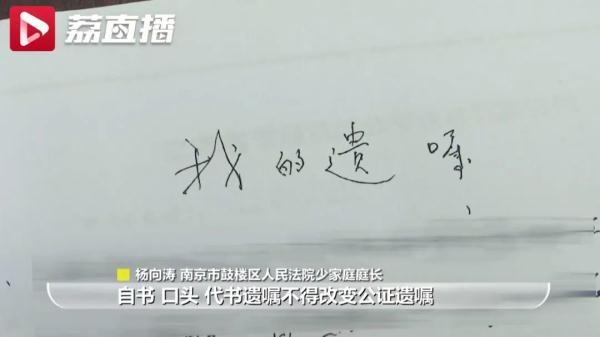 荔直播
我的遗嘱
杨向涛 南京市鼓楼区人民法院少家庭庭长
自书 口头 代书遗嘱不得改变公证遗嘱